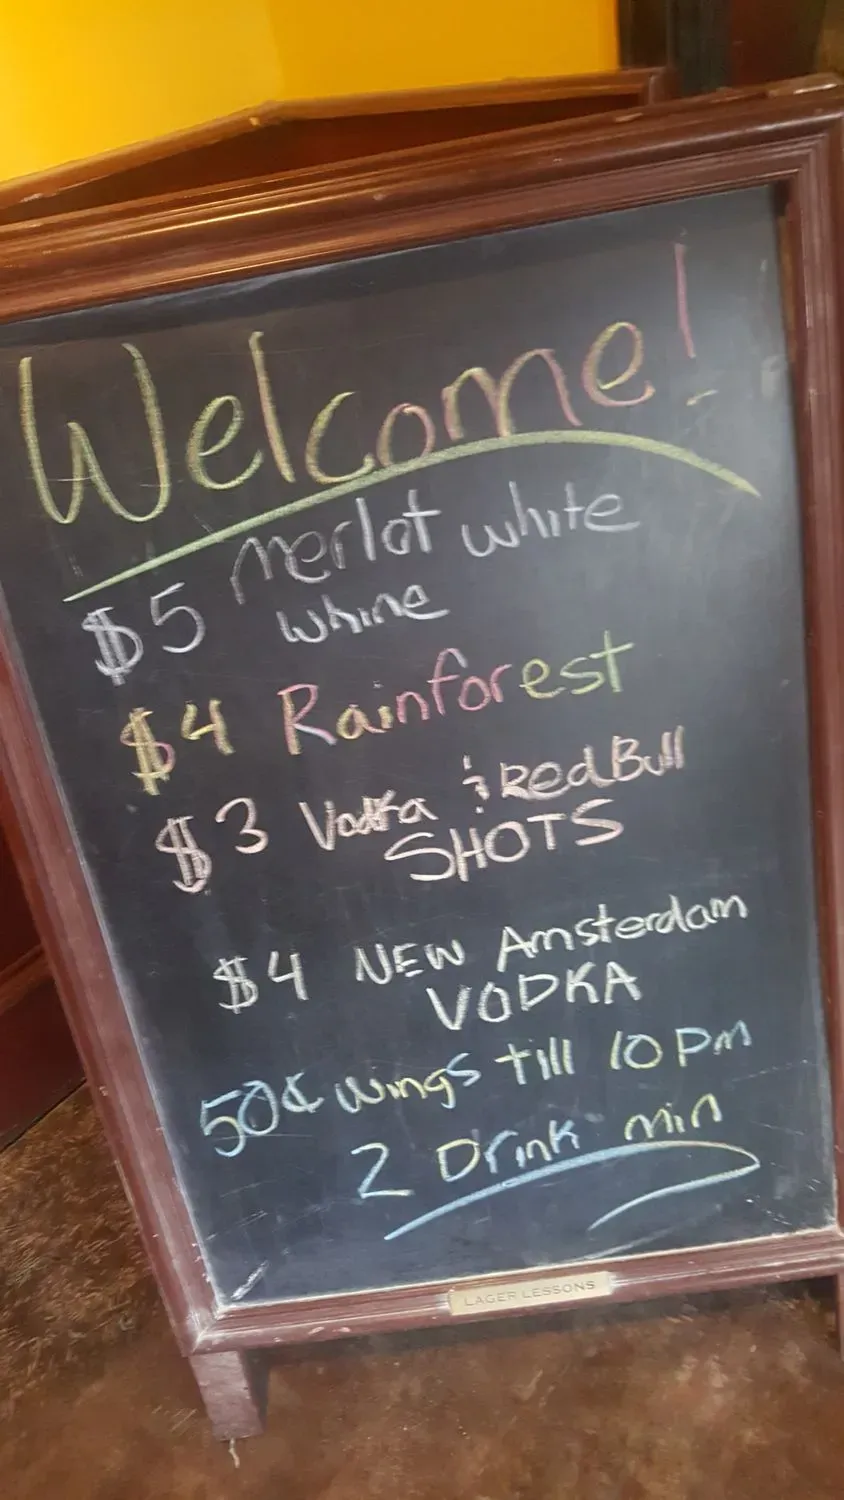 Welcome!
$5 merlot white
whine
$4 Rainforest
$3 Vodka & RedBull
SHOTS
$4 NEW Amsterdam
VODKA
50¢ wings till 10 Pm
2 Drink min
LAGER LESSONS